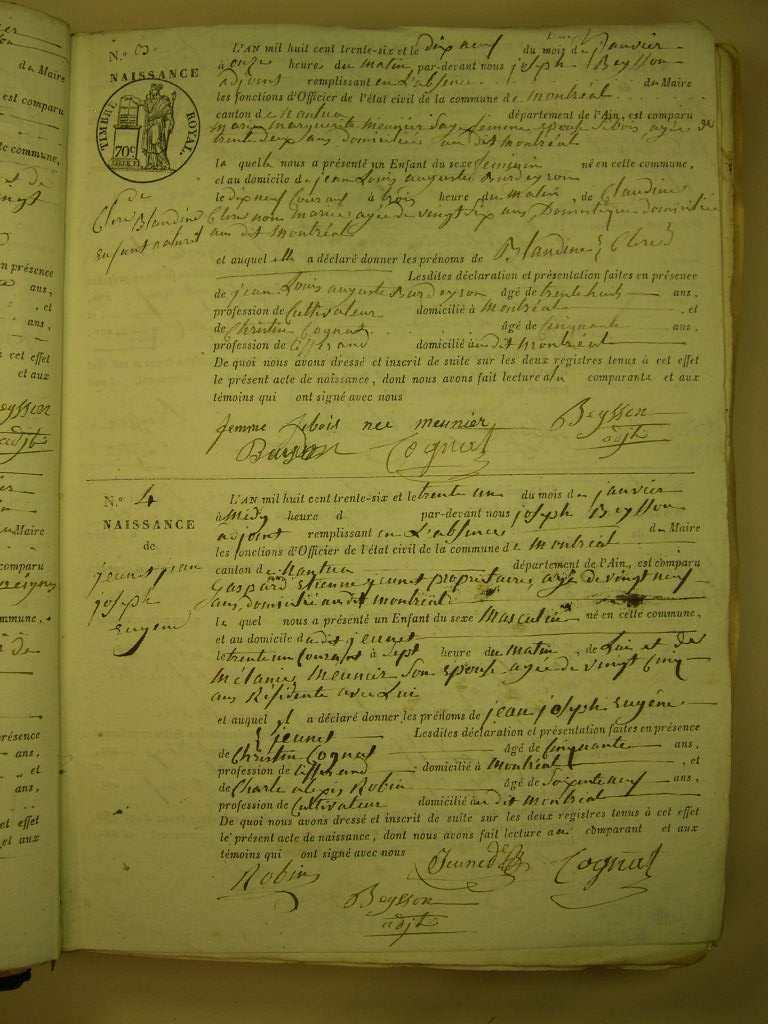 N.º 3.
NAISSANCE
TIMBRE ROYAL.
70 c
de
Clere Blandine
enfant naturel
L'AN mil huit cent trente-six et le dix neuf du mois de janvier
à onze heures du matin, par-devant nous joseph Beysson
adjoint remplissant en L'absence du Maire
les fonctions d'Officier de l'état civil de la commune de montréal
canton de nantua département de l'Ain, est comparu
marie marguerite meunier sage femme epouse jebois agée de
trente deux ans domiciliée au dit montréal
la quelle nous a présenté un Enfant du sexe feminin né en cette commune,
et au domicile de jean Louis auguste Burdeyron
le dix neuf Courant à trois heure du matin, de Claudine
Clere non mariée agée de vingt six ans Domestique domiciliée
au dit montréal
et auquel elle a déclaré donner les prénoms de Blandine Clere
Lesdites déclaration et présentation faites en présence
de jean Louis auguste Burdeyron âgé de trente huit ans,
profession de Cultivateur domicilié à montréal, et
de Christin Cognat âgé de Cinquante ans,
profession de tisserand domicilié au dit montréal
De quoi nous avons dressé et inscrit de suite sur les deux registres tenus à cet effet
le présent acte de naissance, dont nous avons fait lecture à la comparante et aux
témoins qui ont signé avec nous
femme jebois nee meunier Beysson
Cognat adjt
N.º 4
NAISSANCE
de
jeunet jean
joseph
eugene
L'AN mil huit cent trente-six et le trente un du mois de janvier
à Midy heure d par-devant nous joseph Beysson
adjoint remplissant en L'absence du Maire
les fonctions d'Officier de l'état civil de la commune de montréal
canton de nantua département de l'Ain, est comparu
Gaspard Etienne jeunet propriétaire, agé de vingt neuf
ans, domicilié au dit montréal
le quel nous a présenté un Enfant du sexe Masculin né en cette commune,
et au domicile du dit jeunet
le trente un Courant à sept heure du matin, de Lui et de
Mélanie Meunier Son epouse agée de vingt Cinq
ans Résidente avec Lui
et auquel il a déclaré donner les prénoms de jean joseph Eugéne
jeunet Lesdites déclaration et présentation faites en présence
de Christin Cognat âgé de Cinquante ans,
profession de tisserand domicilié à montréal, et
de Charle alexis Robin âgé de Soixante neuf ans,
profession de Cultivateur domicilié au dit montréal
De quoi nous avons dressé et inscrit de suite sur les deux registres tenus à cet effet
le présent acte de naissance, dont nous avons fait lecture au comparant et aux
témoins qui ont signé avec nous
Robin Cognat
Beysson
adjt